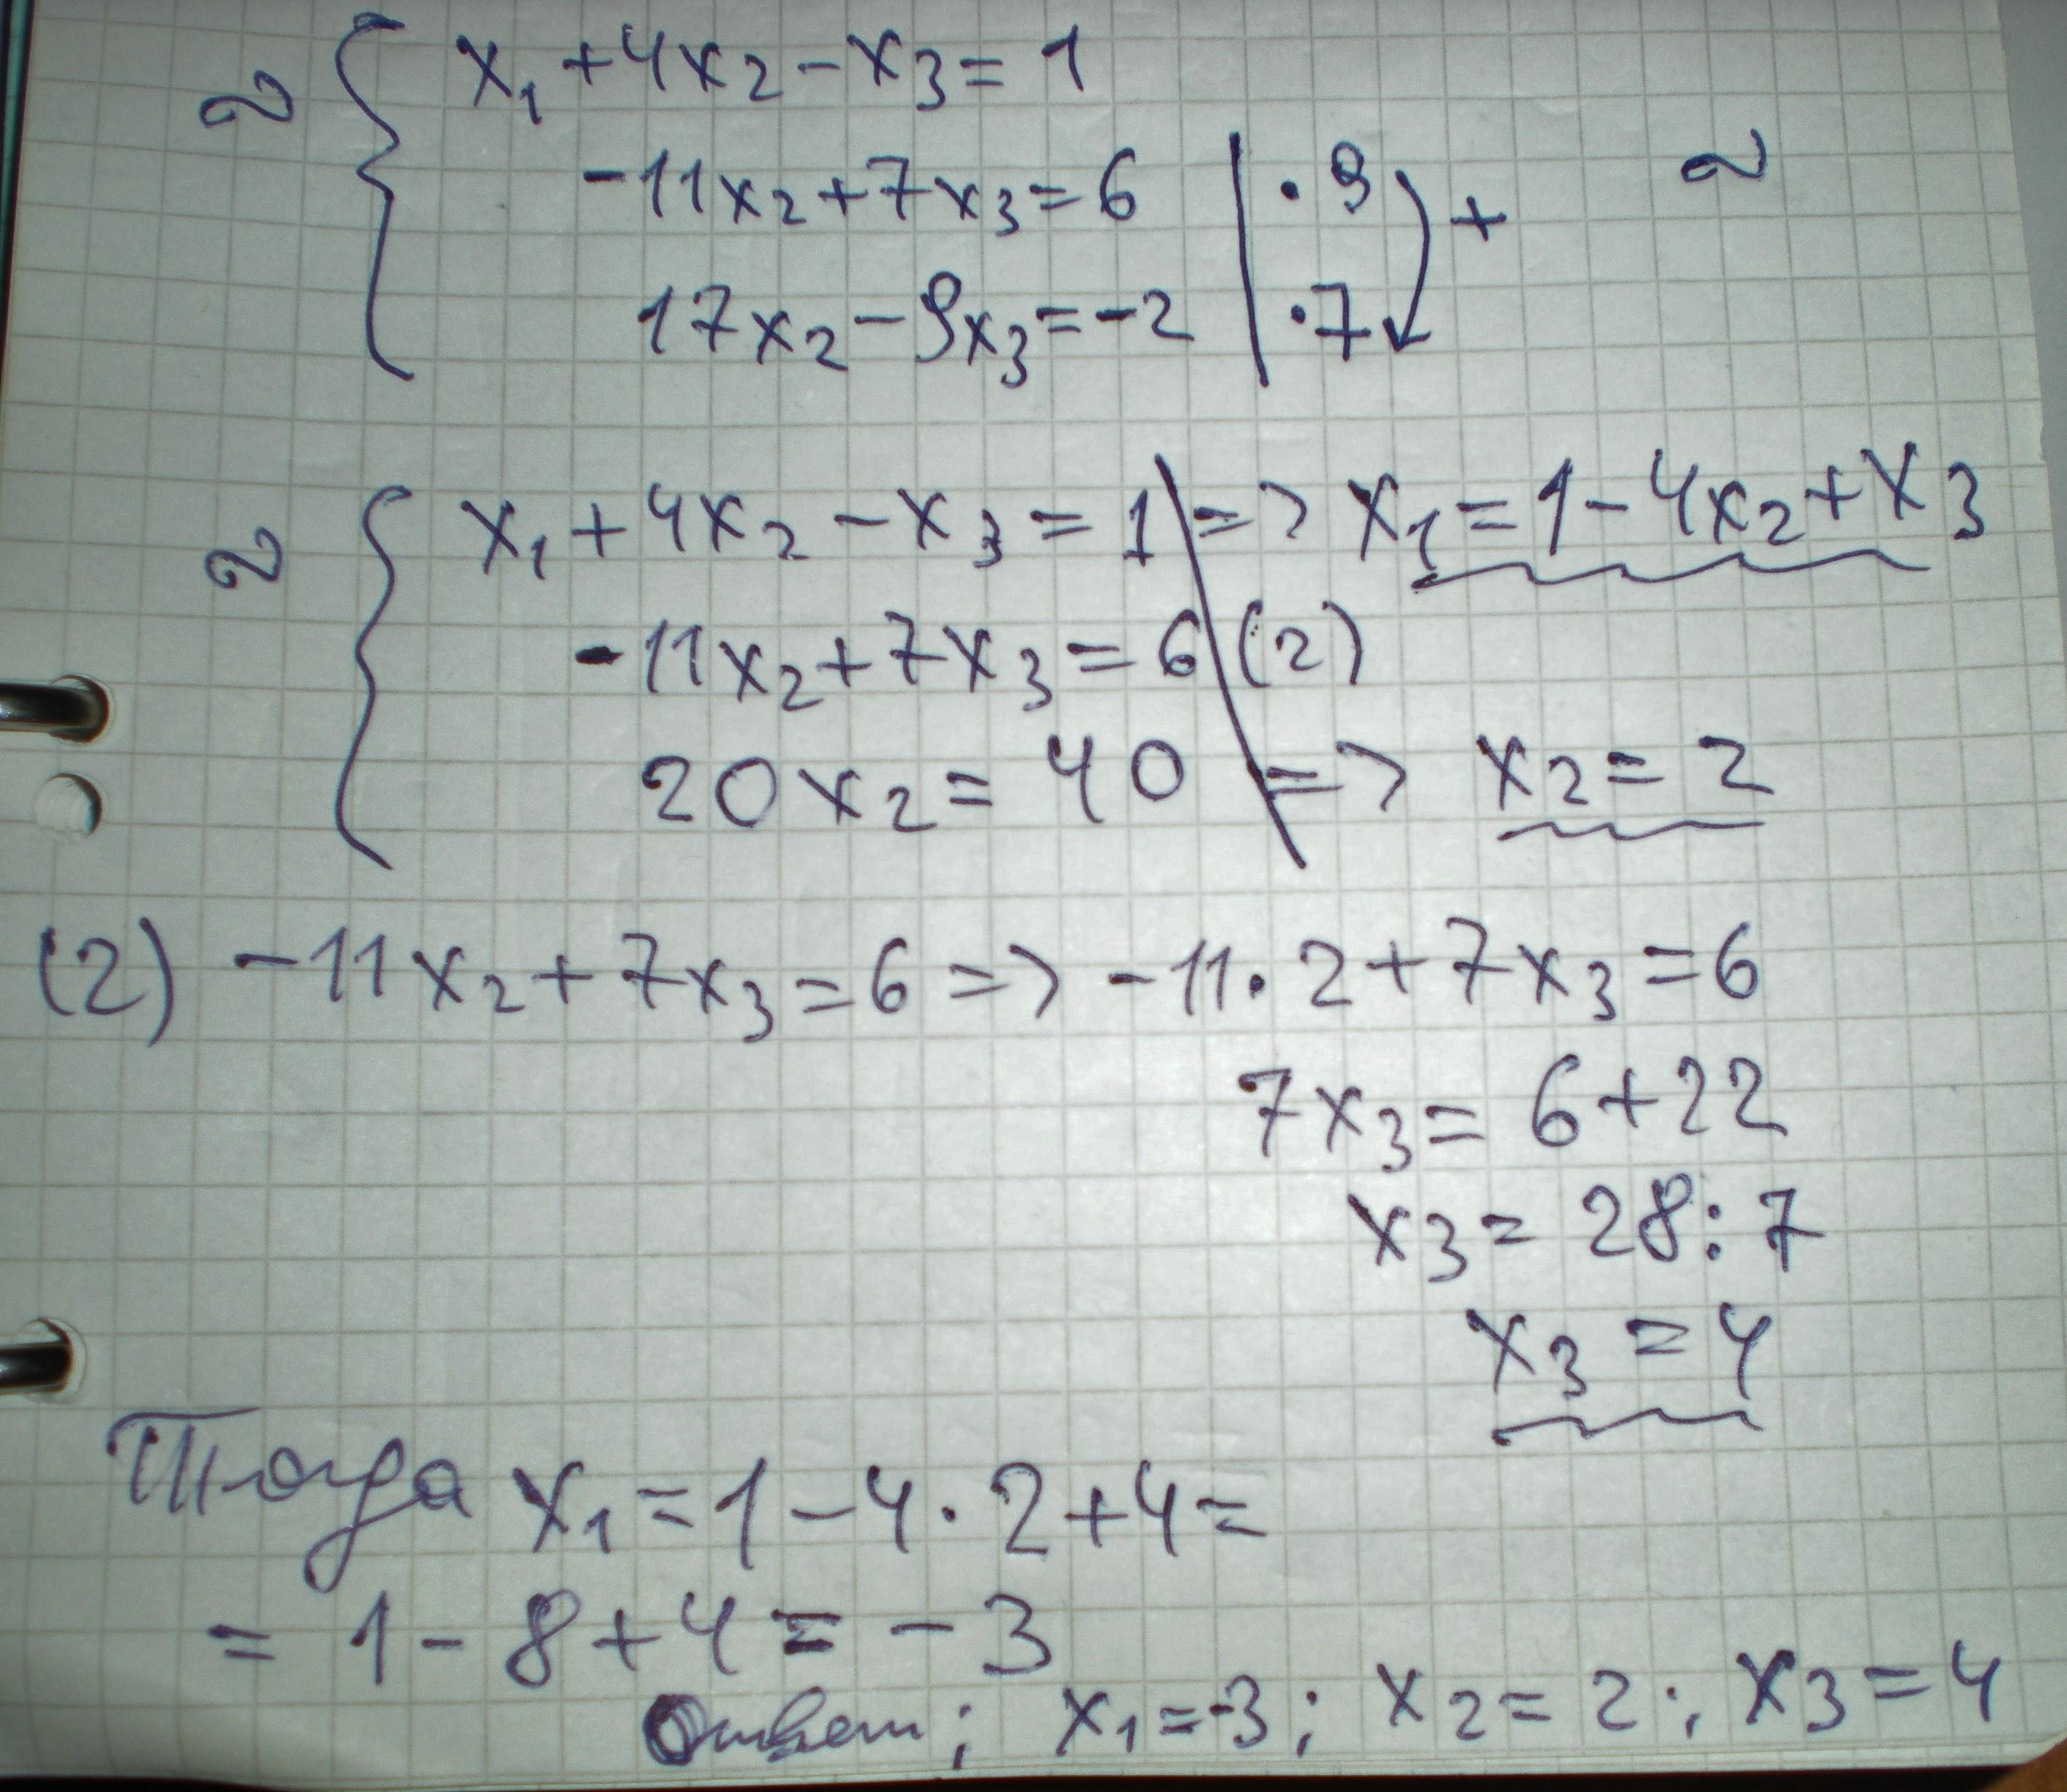 ~ { x₁ + 4x₂ - x₃ = 1
-11x₂ + 7x₃ = 6 | · 9 + ~
17x₂ - 9x₃ = -2 | · 7
~ { x₁ + 4x₂ - x₃ = 1 | => x₁ = 1 - 4x₂ + x₃
-11x₂ + 7x₃ = 6 | (2)
20x₂ = 40 | => x₂ = 2
(2) -11x₂ + 7x₃ = 6 => -11 · 2 + 7x₃ = 6
7x₃ = 6 + 22
x₃ = 28 : 7
x₃ = 4
Тогда x₁ = 1 - 4 · 2 + 4 =
= 1 - 8 + 4 = -3
Ответ; x₁ = -3; x₂ = 2; x₃ = 4